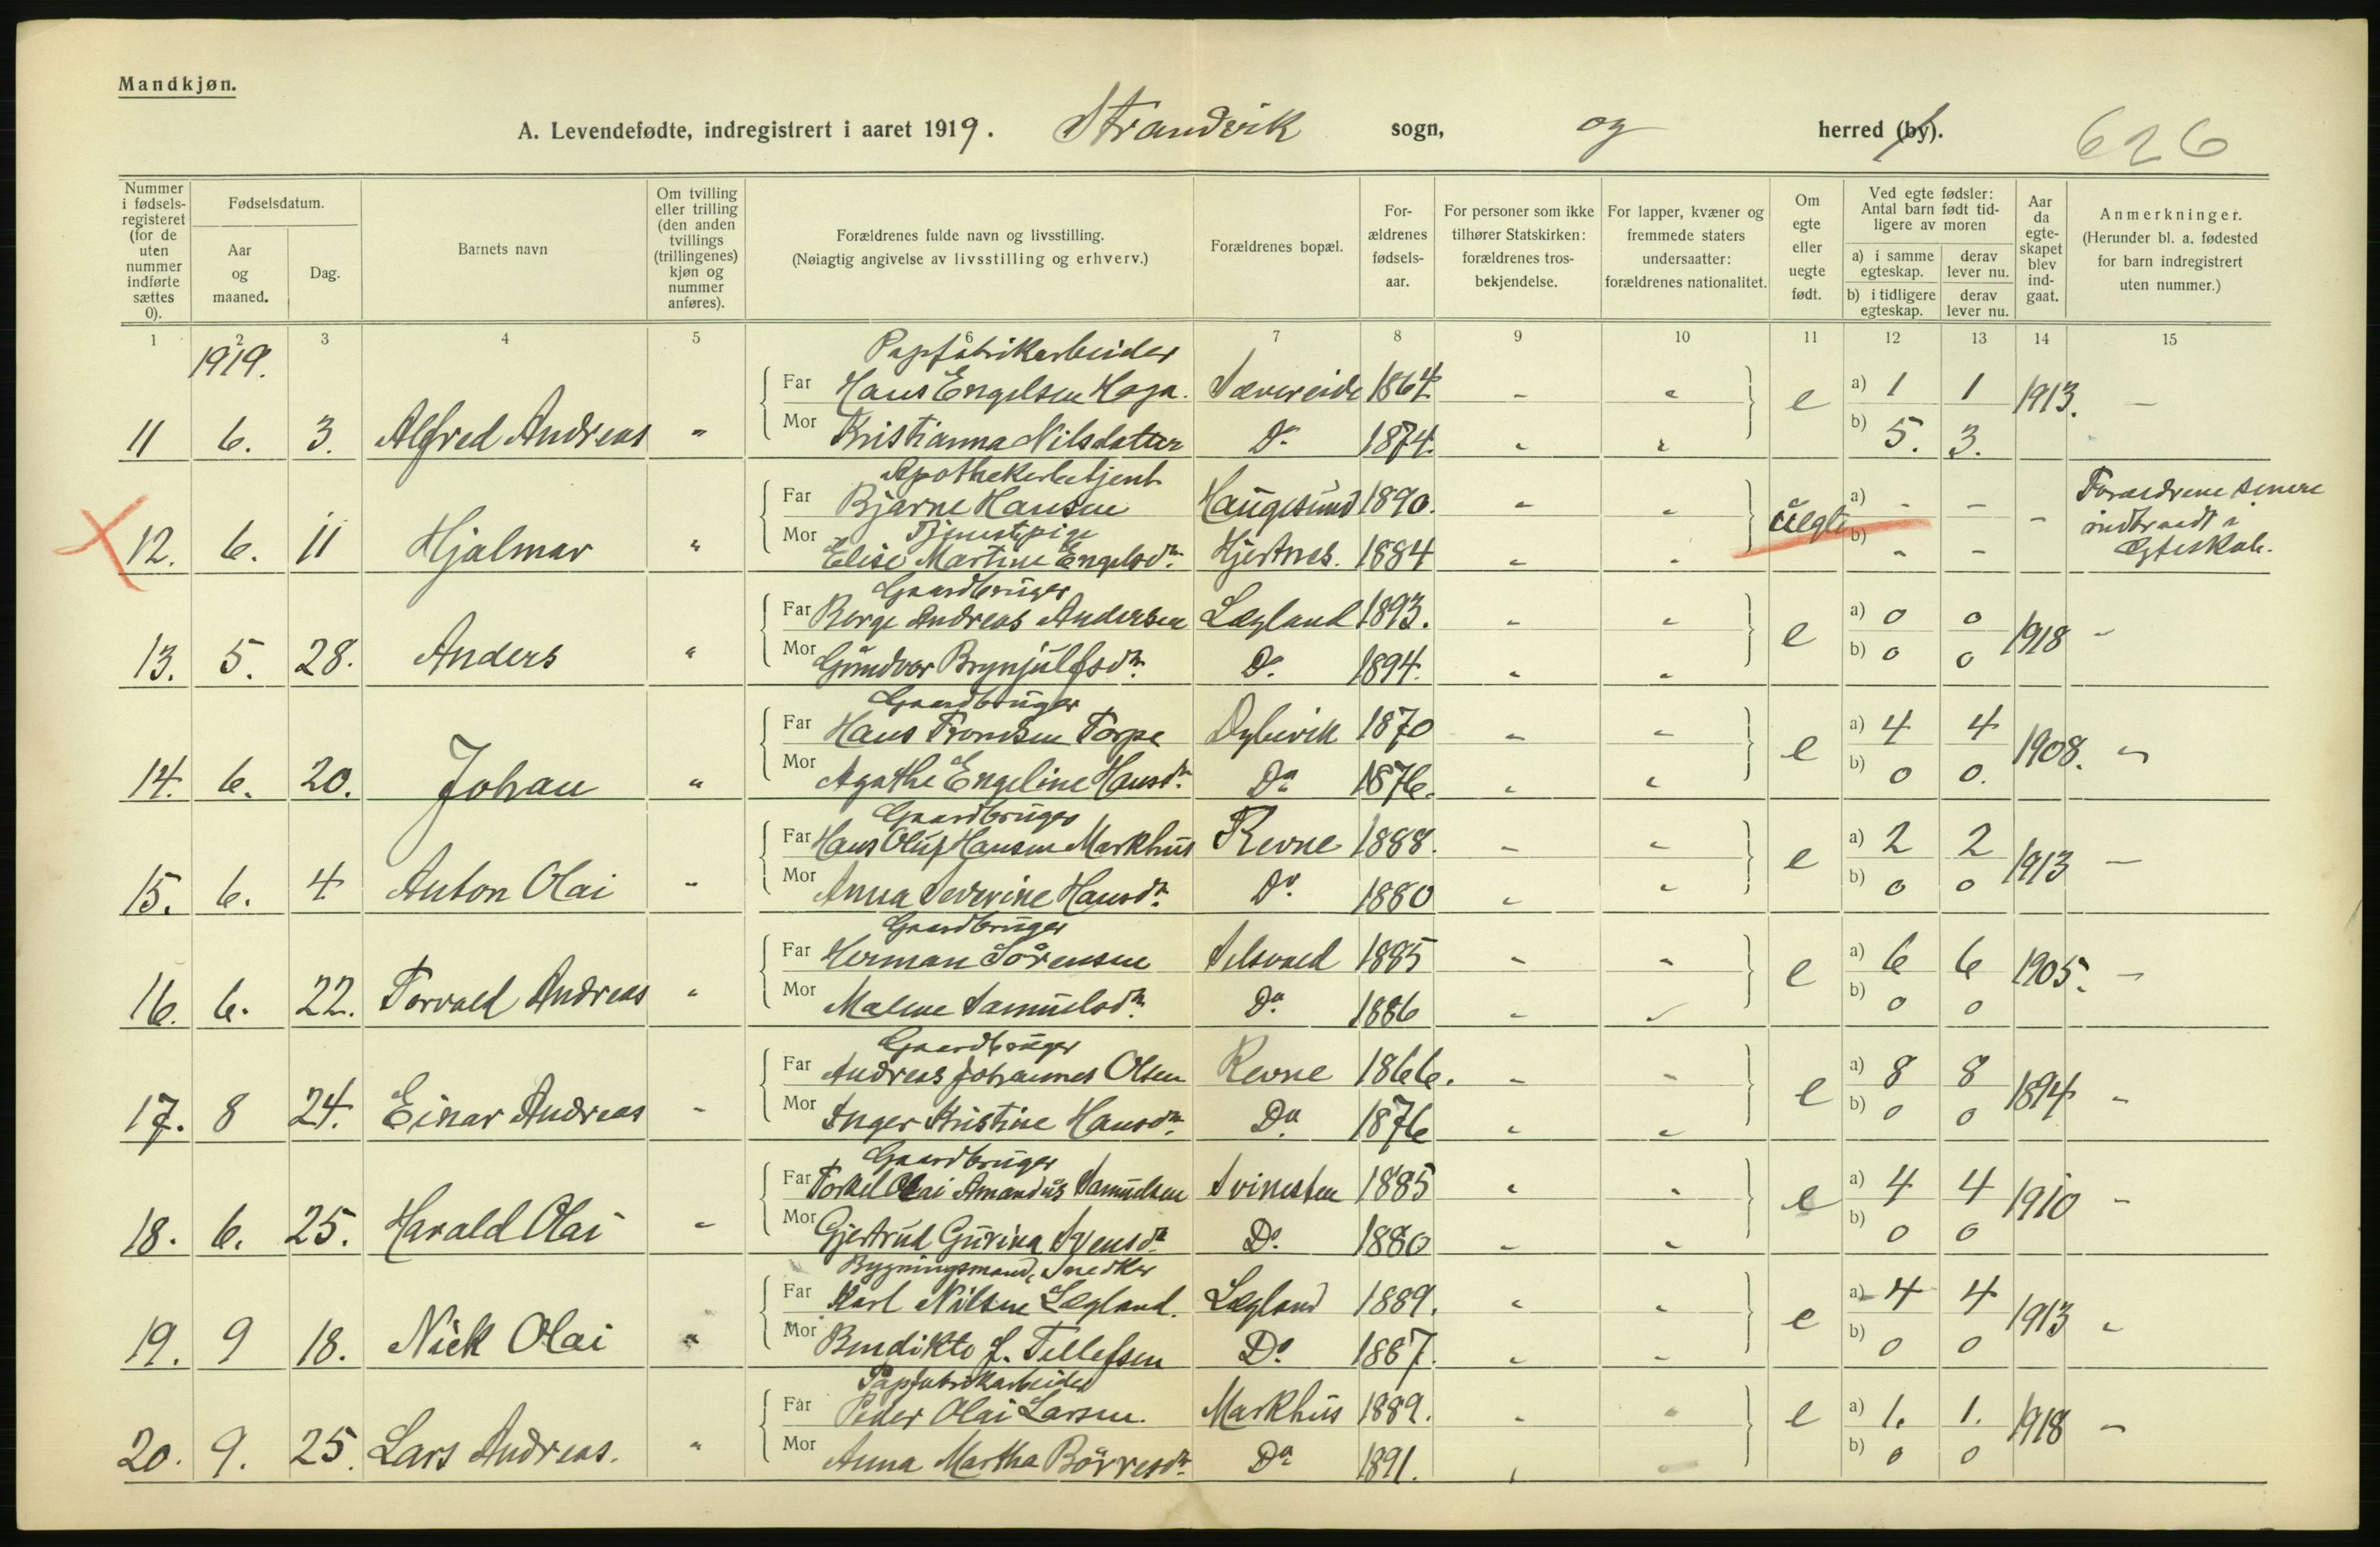 Mandkjøn.
A. Levendefødte, indregistrert i aaret 1919. Strandvik sogn, og herred (by). 626
Nummer i fødsels-registeret (for de uten nummer indførte sættes 0).
Fødselsdatum.
Aar og maaned.
Dag.
Barnets navn
Om tvilling eller trilling (den anden tvillings (trillingenes) kjøn og nummer anføres).
Forældrenes fulde navn og livsstilling.
(Nøiagtig angivelse av livsstilling og erhverv.)
Forældrenes bopæl.
For-ældrenes fødsels-aar.
For personer som ikke tilhører Statskirken: forældrenes tros-bekjendelse.
For lapper, kvæner og fremmede staters undersaatter: forældrenes nationalitet.
Om egte eller uegte født.
Ved egte fødsler: Antal barn født tid-ligere av moren
a) i samme egteskap. derav lever nu.
b) i tidligere egteskap. derav lever nu.
Aar da egte-skapet blev ind-gaat.
Anmerkninger.
(Herunder bl. a. fødested for barn indregistrert uten nummer.)
1 2 3 4 5 6 7 8 9 10 11 12 13 14 15
1919.
Papfabrikarbeider
Far Hans Engelsen Haga. Sævereide 1864 - " e a) 1 1 1913. -
11 6. 3. Alfred Andreas " Mor Kristianna Nilsdatter Do 1874. " " b) 5. 3.
Apothekerbetjent
Far Bjarne Hansen Haugesund 1890. " " uegte a) - - - Forældrene senere indtraadt i Egteskab.
Tjenestepige
12. 6. 11 Hjalmar " Mor Elise Martine Engelsdtr. Hjertnes. 1884 " " b) - -
Gaardbruger
Far Børge Andreas Andersen Lægland 1893. " " e a) 0 0 1918 -
13. 5. 28. Anders " Mor Gundvor Brynjulfsdtr. Do. 1894. " " b) 0 0
Gaardbruger
Far Hans Tronsen Torpe Dybevik 1870 " " e a) 4 4 1908. "
14. 6. 20. Johan " Mor Agathe Engeline Hansdtr. Do 1876. " " b) 0 0.
Gaardbruger
Far Hans Oluf Hansen Markhus Revne 1888. - " e a) 2 2 1913 -
15. 6. 4 Anton Olai " Mor Anna Severine Hansdtr. Do. 1880 " " b) 0 0
Gaardbruger
Far Herman Sørensen 1885 " " e a) 6 6 1905. -
16. 6. 22. Torvald Andreas " Mor Malene Samuelsdtr. Do. 1886 " " b) 0 0
Gaardbruger
Far Andreas Johannes Olsen Revne 1866. - " e a) 8 8 1894 "
17. 8 24. Einar Andreas - Mor Inger Kristine Hansdtr. Do. 1876 " " b) 0 0
Gaardbruger
Far Torkel Olai Amandus Samuelsen Svinesten 1885 " " e a) 4 4 1910 -
18. 6. 25. Harald Olai " Mor Gjertrud Gurina Svensdtr. Do. 1880 " " b) 0 0
Bygningsmand, Snedker
Far Karl Nilsen Lægland. Lægland 1889. " " e a) 4 4 1913 "
19. 9 18. Nick Olai " Mor Bendikte J. Tellefsen Do. 1887. " " b) 0 0
Papfabrikarbeider
Far Peder Olai Larsen. Markhus 1889. " " e a) 1. 1. 1918 -
20. 9. 25. Lars Andreas. " Mor Anna Martha Börresdtr. Do 1891. " " b) 0 0